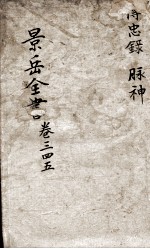 傳忠錄 脉神
景岳全書 卷三四五